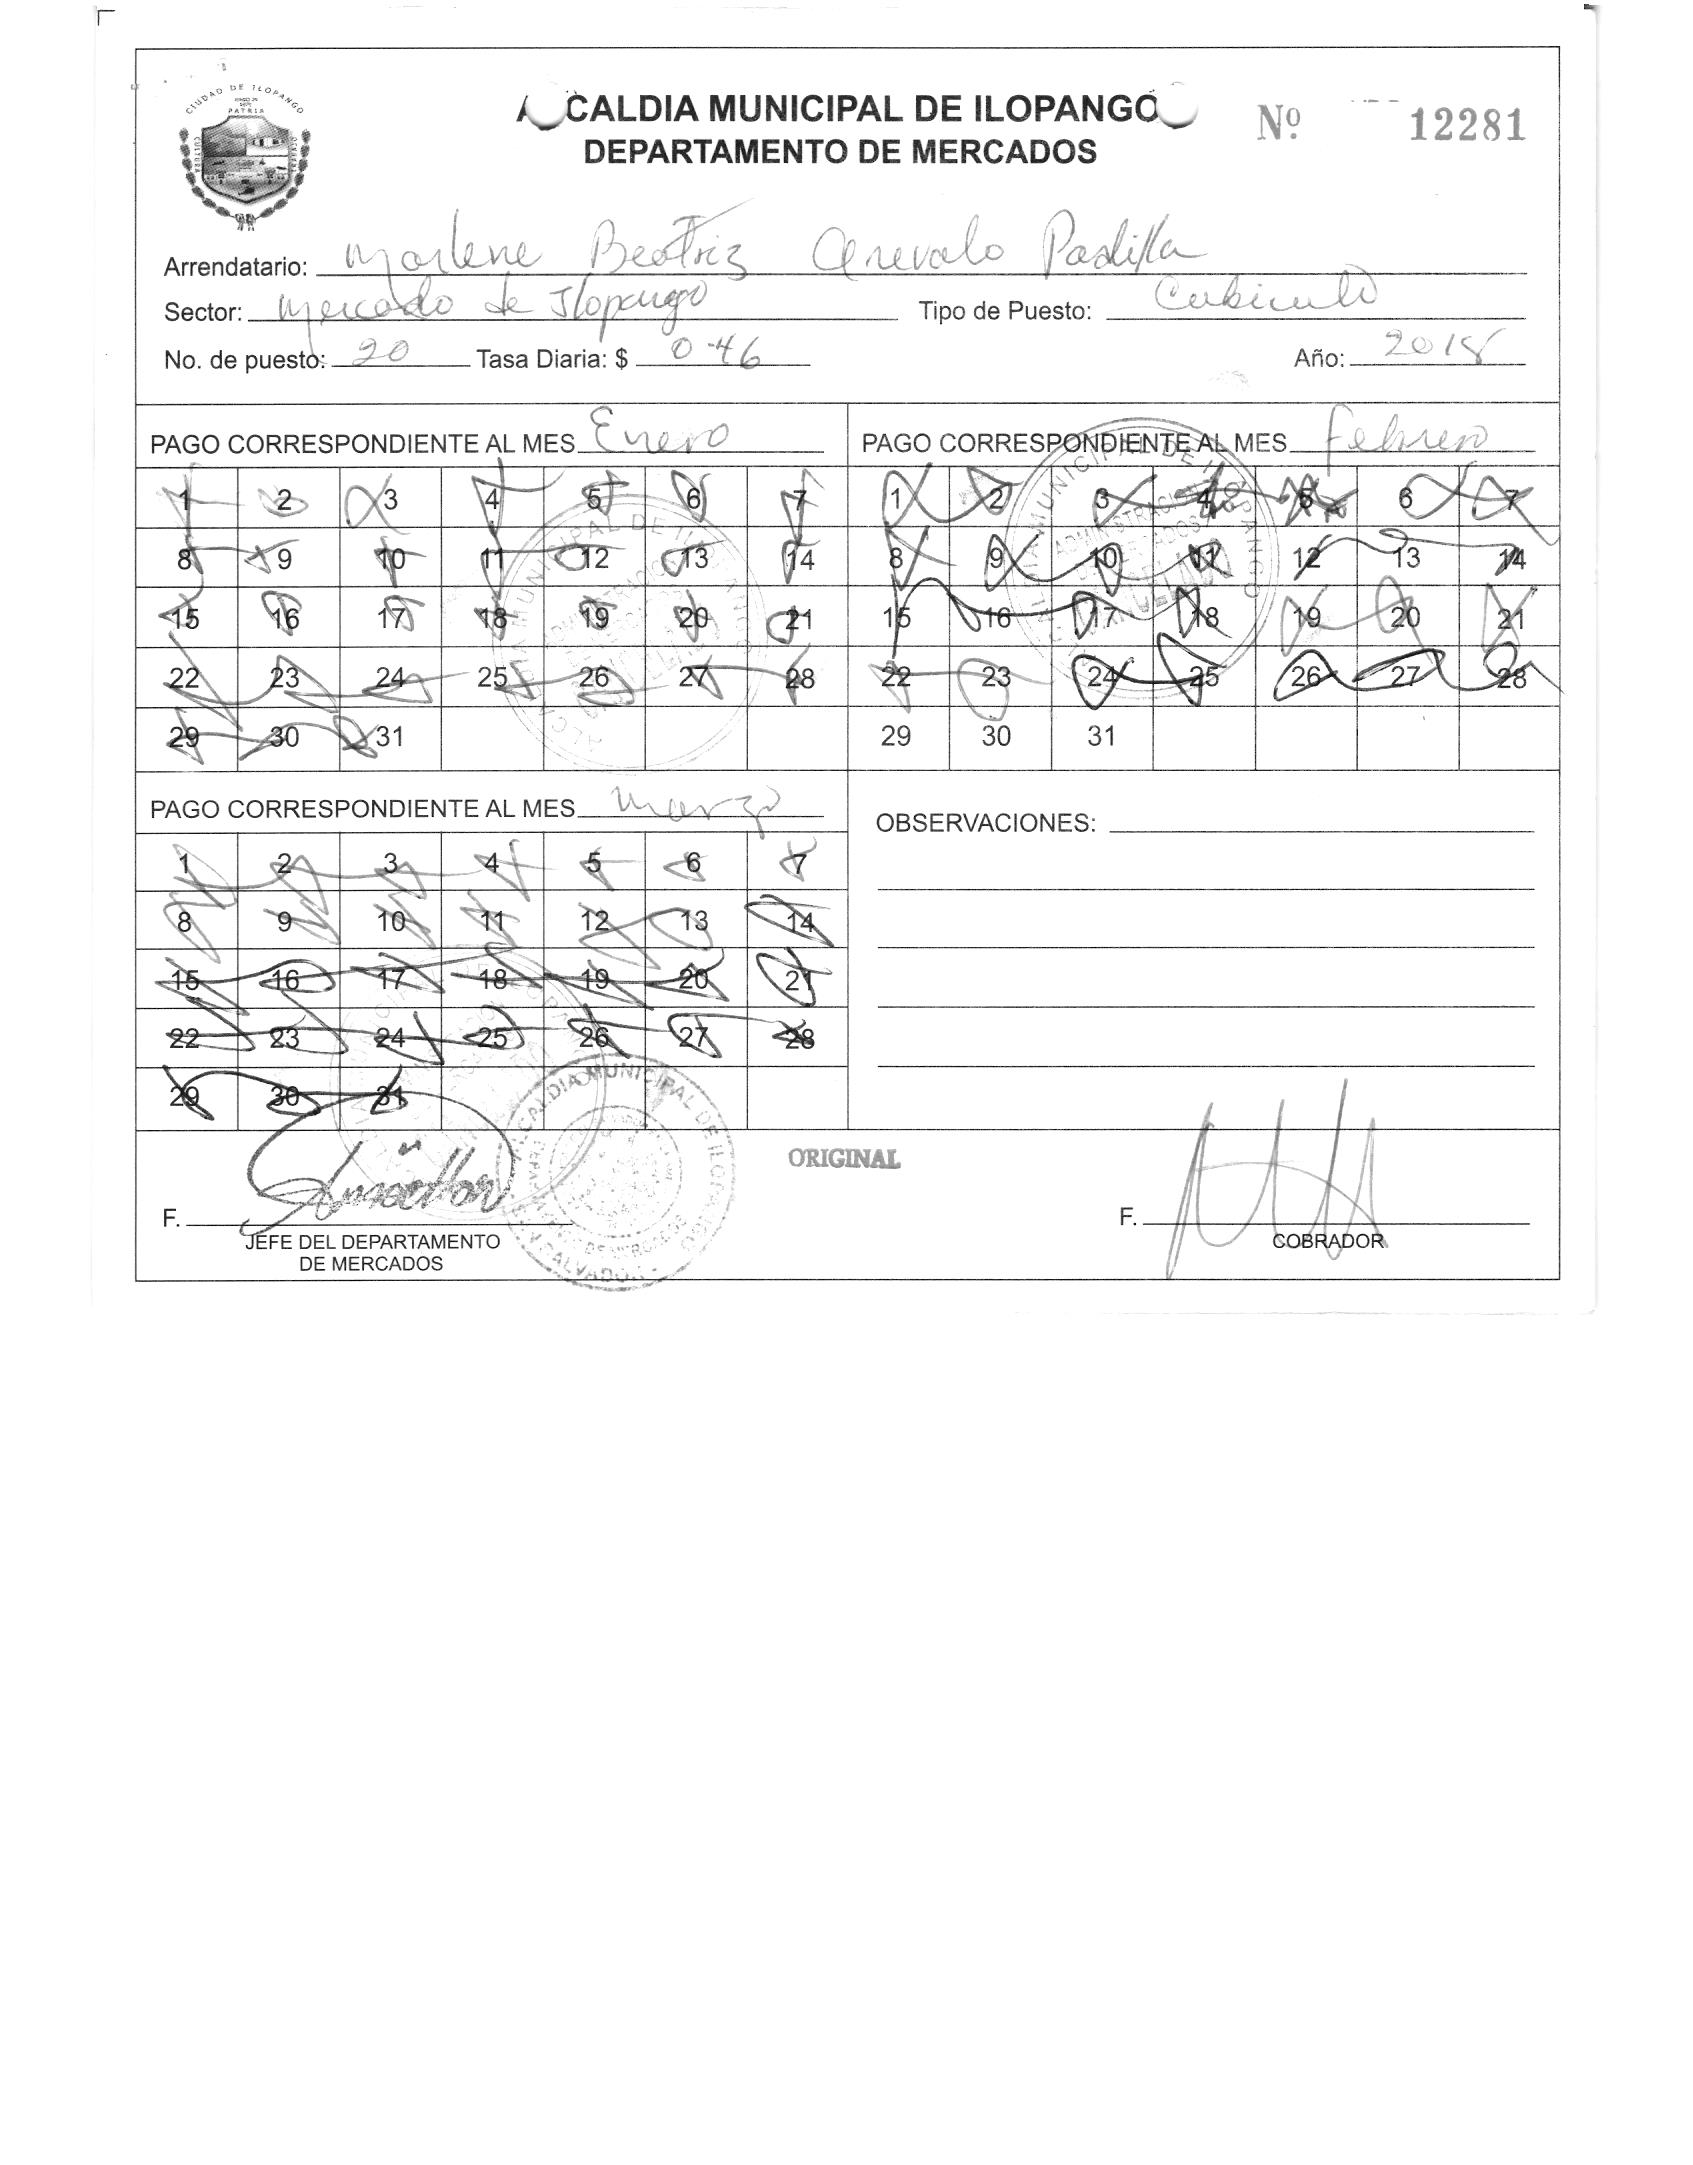 CIUDAD DE ILOPANGO
PATRIA
CULTURA
ALCALDIA MUNICIPAL DE ILOPANGO
DEPARTAMENTO DE MERCADOS
Nº. 12281
Arrendatario: Marlene Beatriz Arevalo Padilla
Sector: Mercado de Ilopango Tipo de Puesto: Cubiculo
No. de puesto: 20 Tasa Diaria: $ 0.46 Año: 2018
PAGO CORRESPONDIENTE AL MES Enero
1 2 3 4 5 6 7
8 9 10 11 12 13 14
15 16 17 18 19 20 21
22 23 24 25 26 27 28
29 30 31
PAGO CORRESPONDIENTE AL MES Febrero
1 2 3 4 5 6 7
8 9 10 11 12 13 14
15 16 17 18 19 20 21
22 23 24 25 26 27 28
29 30 31
PAGO CORRESPONDIENTE AL MES Marzo
1 2 3 4 5 6 7
8 9 10 11 12 13 14
15 16 17 18 19 20 21
22 23 24 25 26 27 28
29 30 31
OBSERVACIONES:
ALCALDIA MUNICIPAL DE ILOPANGO
SAN SALVADOR
ORIGINAL
F.
JEFE DEL DEPARTAMENTO
DE MERCADOS
F.
COBRADOR